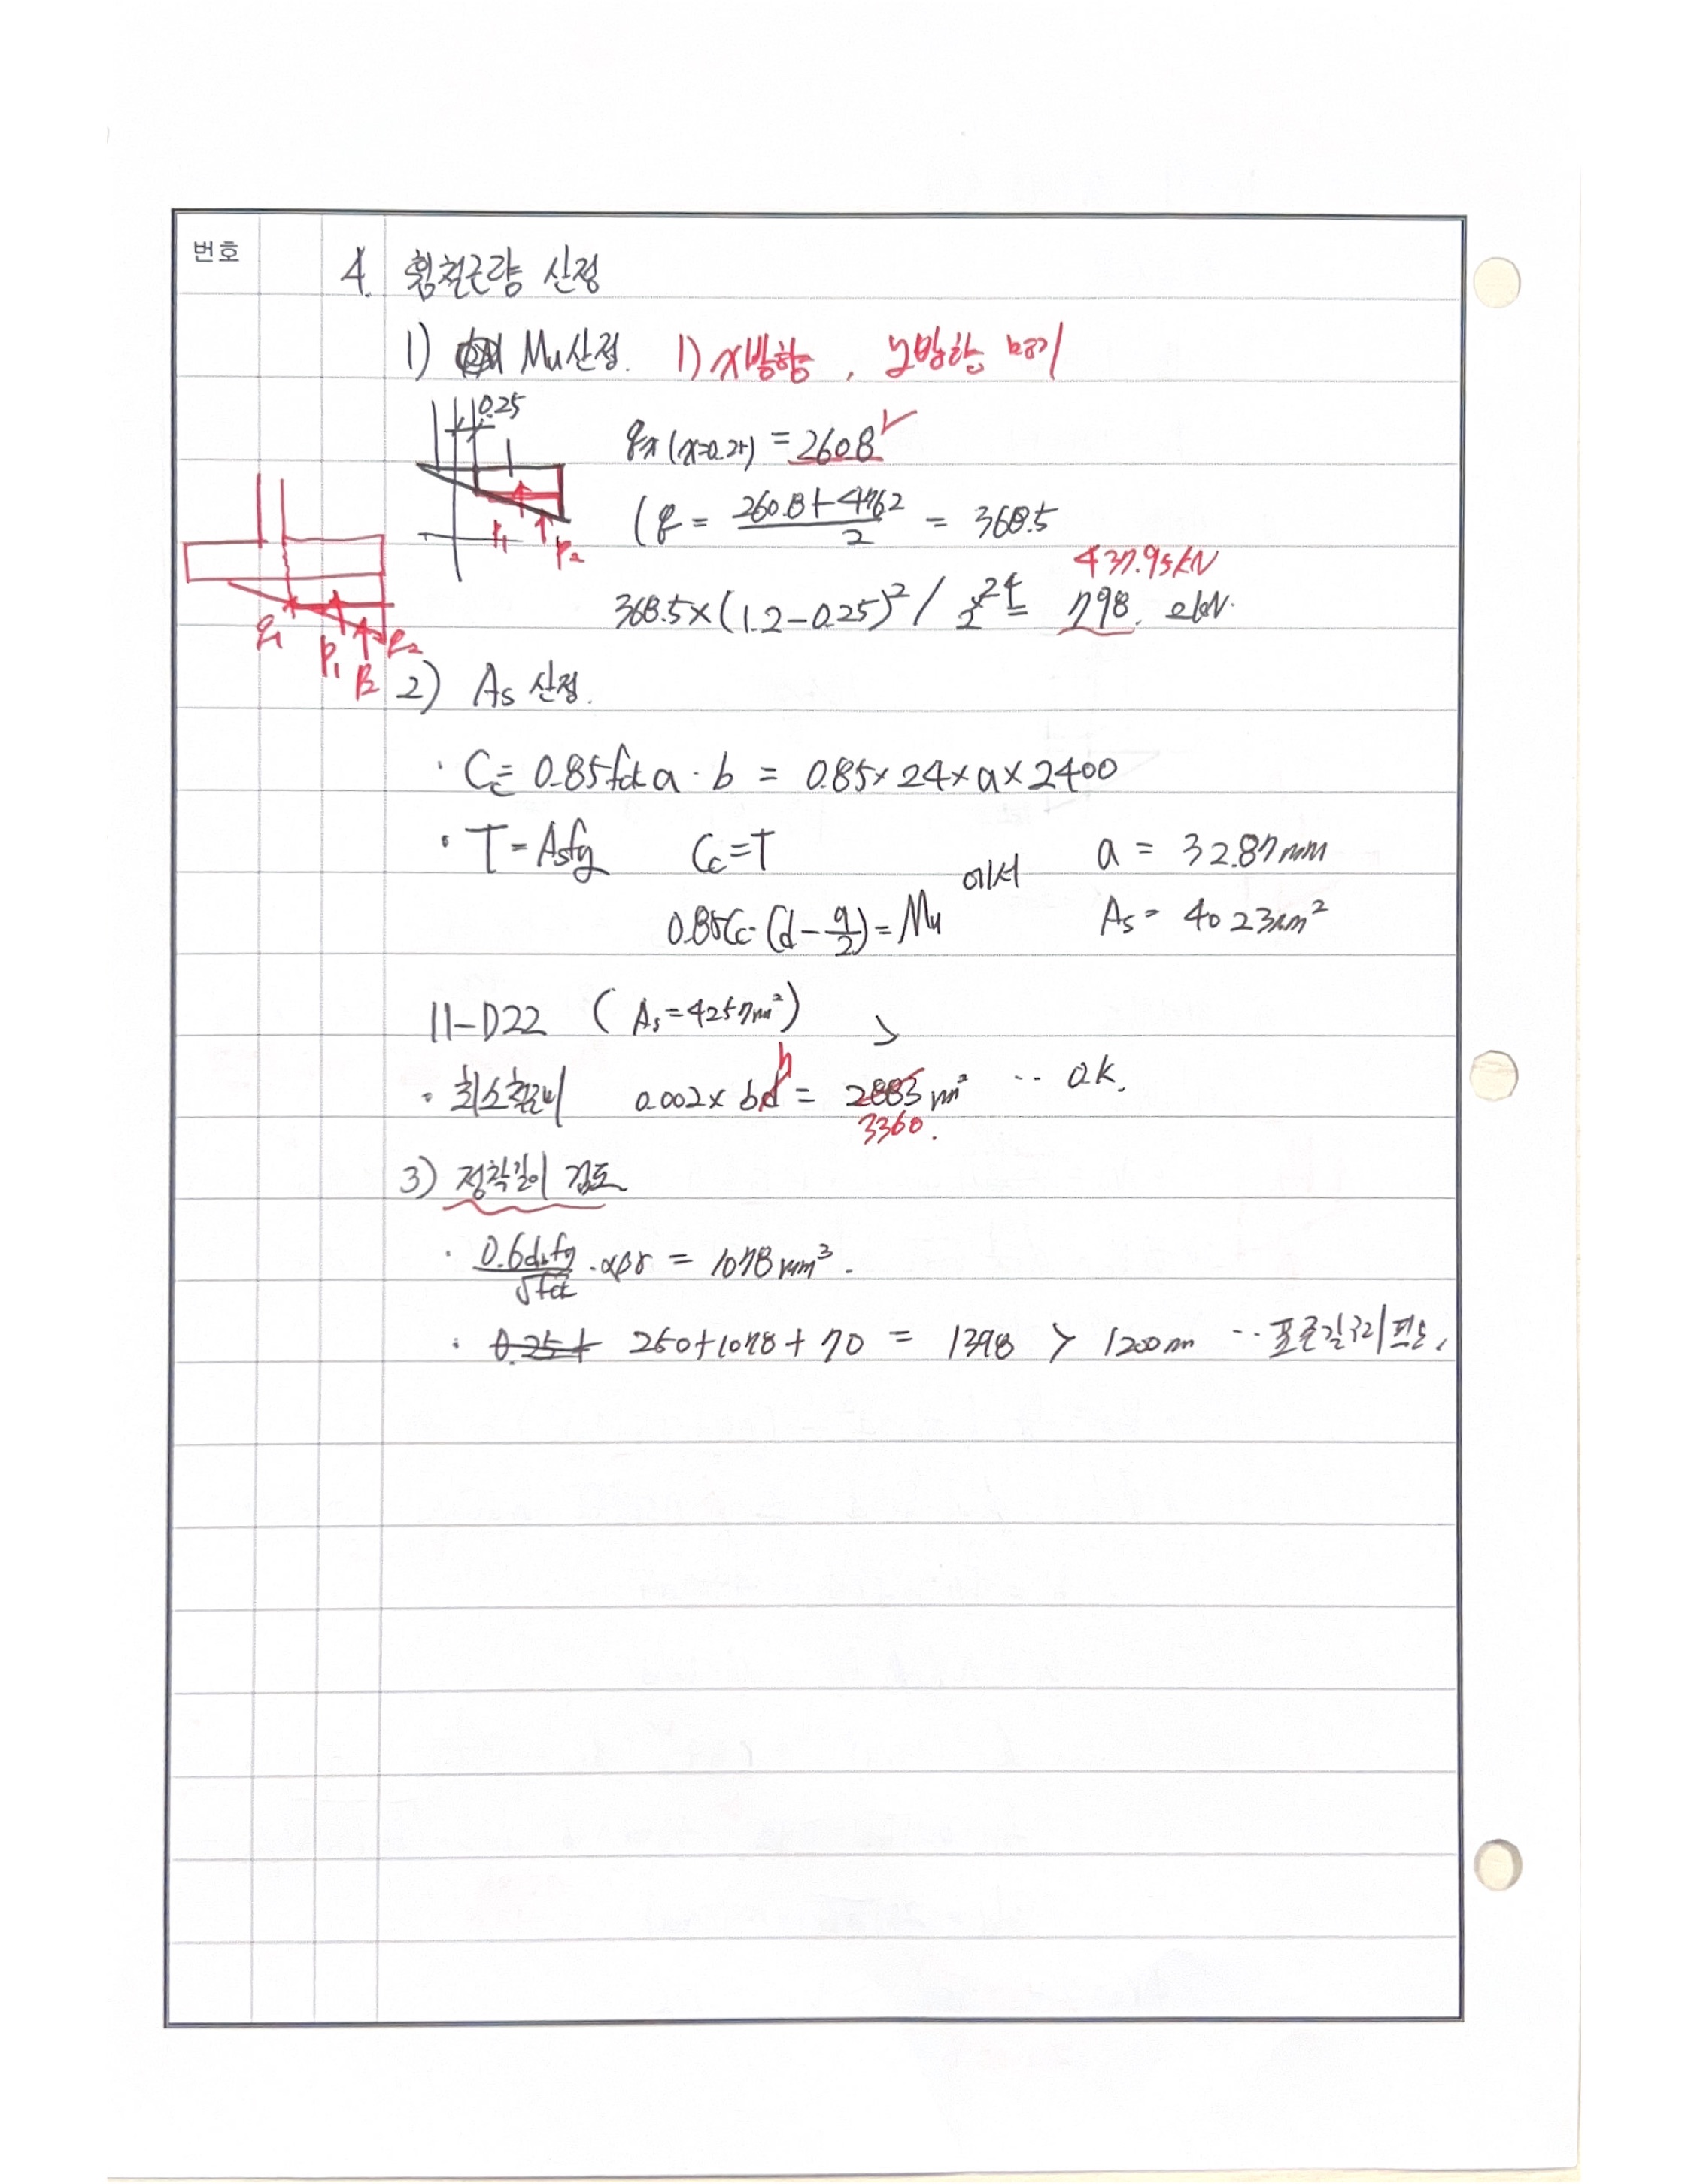 번호
4. 휨철근량 산정
1) Mu산정. 1) x방향, y방향 명기
0.25
qx (x=0.25) = 260.8
P1 P2
( q = (260.8+476.2)/2 = 368.5
437.95kN
368.5×(1.2-0.25)²/2 ×2.4 = 798. 2kN.
q1 P1 P2 q2
2) As 산정.
· Cc = 0.85fck a · b = 0.85×24×a×2400
· T = Asfy Cc=T 에서 a = 32.87mm
0.85Cc·(d-a/2)=Mu As = 4023mm²
11-D22 ( As=4257mm² ) >
· 최소철근비 0.002×bd h = 2883mm² ·· O.K.
3360.
3) 정착길이 검토
· 0.6dbfy/√fck ·αβγ = 1078mm³.
· 0.25+ 250+1078+70 = 1398 > 1200mm ·· 표준갈고리 필요.